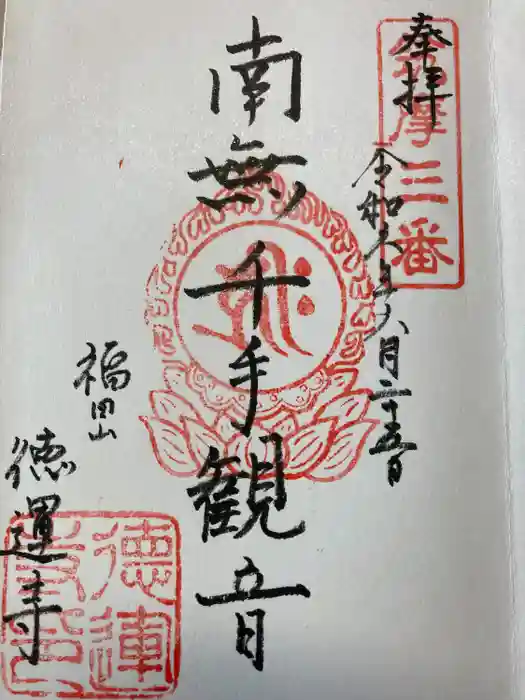 奉拝
摩三番
令和六年六月二十五日
南無千手観音
福田山
徳運寺
徳運寺印